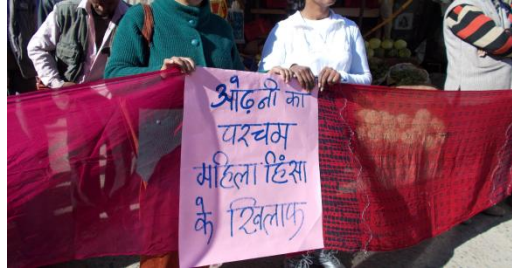 ओढ़नी का
परचम
महिला हिंसा
के खिलाफ